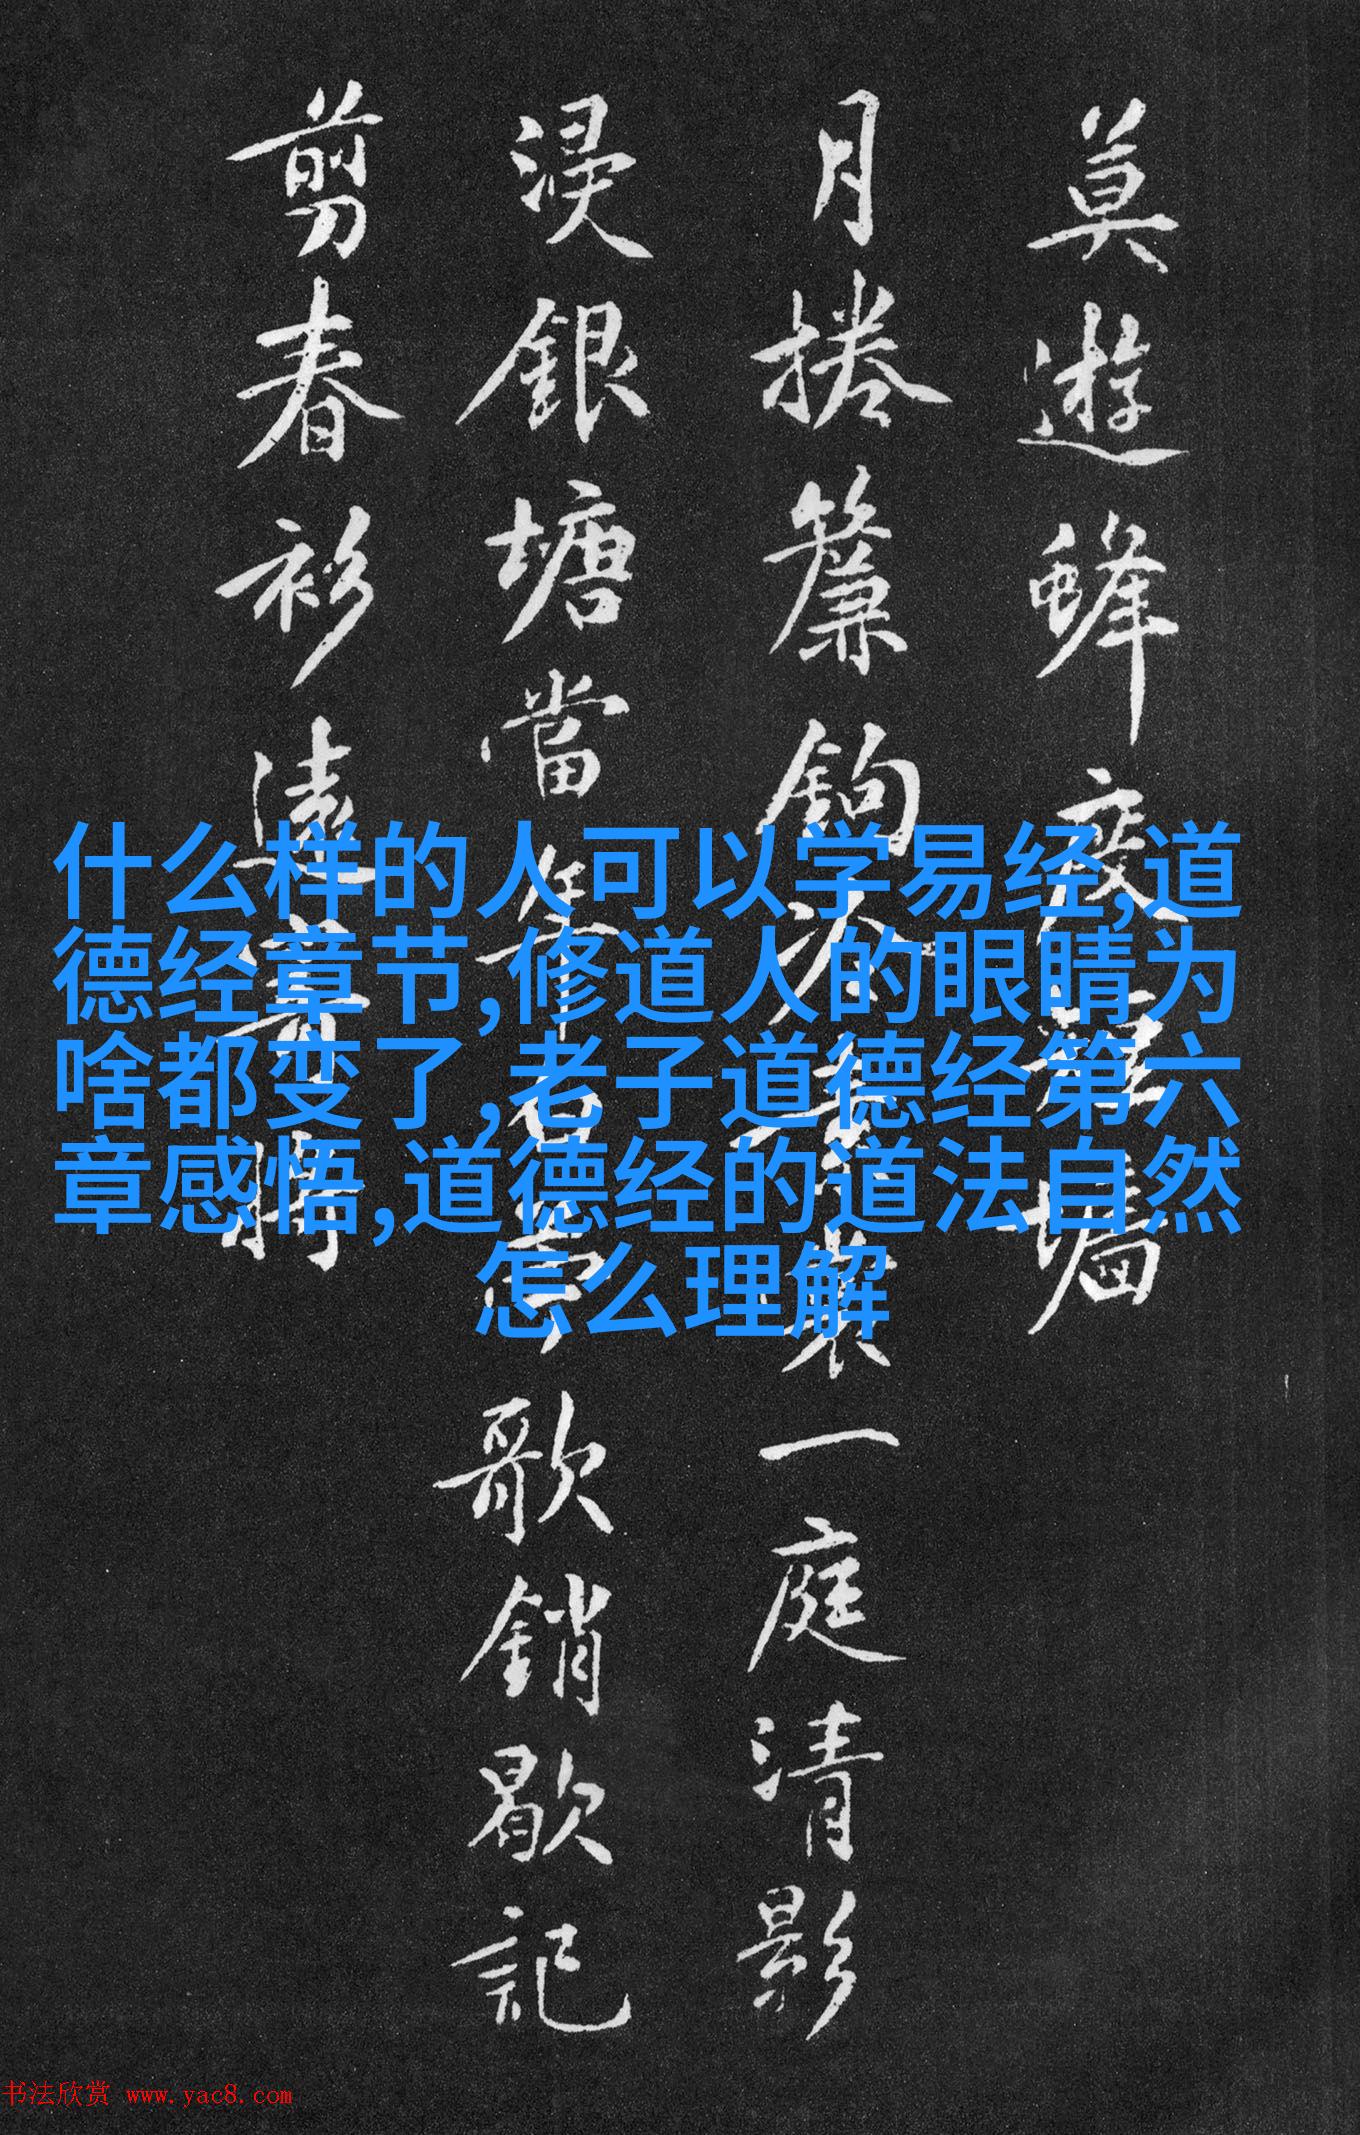 莫遊蜂度墻
月捲簾鉤冷一庭清影
浸銀塘當年歌銷歇記
剪春衫時
什么样的人可以学易经,道
德经章节,修道人的眼睛为
啥都变了,老子道德经第六
章感悟,道德经的道法自然
怎么理解
书法欣赏 www.yac8.com